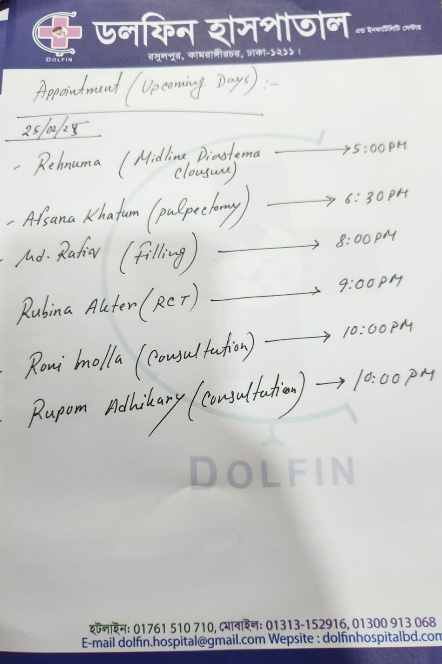 ডলফিন হাসপাতাল এন্ড ইনফার্টিলিটি সেন্টার
DOLFIN
রসুলপুর, কামরাঙ্গীরচর, ঢাকা-১২১১।
Appointment (Upcoming Days):-
25/02/25
- Rehnuma (Midline Diastema clousure) → 5:00 PM
- Afsana Khatum (pulpectomy) → 6:30 PM
- Md. Rafiq (filling) → 8:00 PM
Rubina Akter (RCT) → 9:00 PM
- Roni Molla (consultation) → 10:00 PM
- Rupom Adhikary (consultation) → 10:00 PM
DOLFIN
হটলাইন: 01761 510 710, মোবাইল: 01313-152916, 01300 913 068
E-mail dolfin.hospital@gmail.com Wepsite : dolfinhospitalbd.com